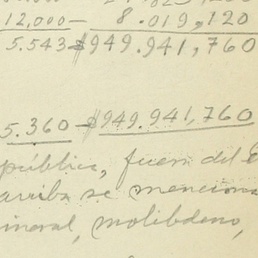 12,000— 8.019,120
5.543—$949.941,760
5.360—$949.941,760
pública, fuera del
arriba se menciona
ineral, molibdeno,